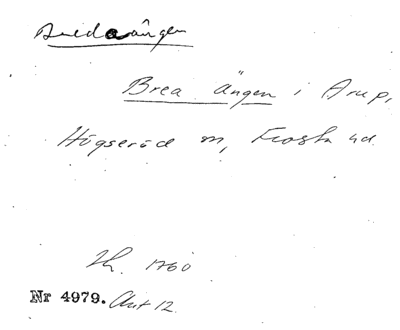 Bredaängen
Brea ängen i Arup,
Högseröd sn, Frosta hd.
Lh. 1760
Nr 4979. Akt 12.